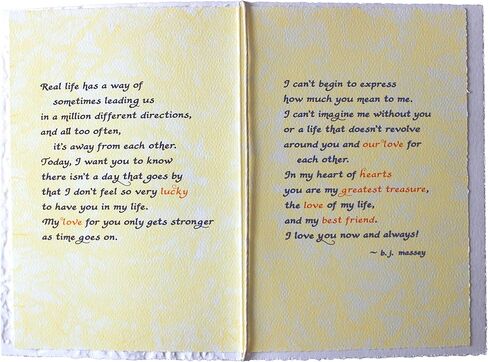 Real life has a way of
sometimes leading us
in a million different directions,
and all too often,
it's away from each other.
Today, I want you to know
there isn't a day that goes by
that I don't feel so very lucky
to have you in my life.
My love for you only gets stronger
as time goes on.
I can't begin to express
how much you mean to me.
I can't imagine me without you
or a life that doesn't revolve
around you and our love for
each other.
In my heart of hearts
you are my greatest treasure,
the love of my life,
and my best friend.
I love you now and always!
~ b.j. massey